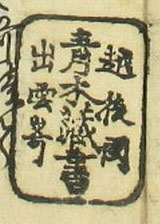 越後国
青木蔵書
出雲嵜